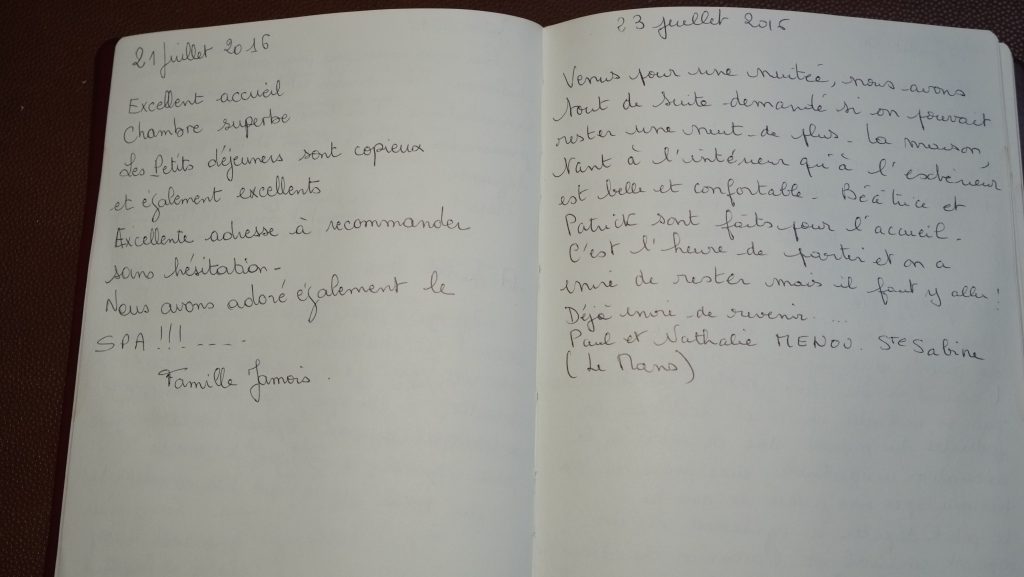 21 Juillet 2016
Excellent accueil
Chambre superbe
Les Petits déjeuners sont copieux
et également excellents
Excellente adresse à recommander
sans hésitation -
Nous avons adoré également le
SPA !!! ----
Famille Jamois.
23 juillet 2016
Venus pour une nuitée, nous avons
tout de suite demandé si on pouvait
rester une nuit de plus. La maison,
tant à l'intérieur qu'à l'extérieur
est belle et confortable. Béatrice et
Patrick sont faits pour l'accueil.
C'est l'heure de partir et on a
envie de rester mais il faut y aller !
Déjà envie de revenir....
Paul et Nathalie MENOU. Ste Sabine
(Le Mans)